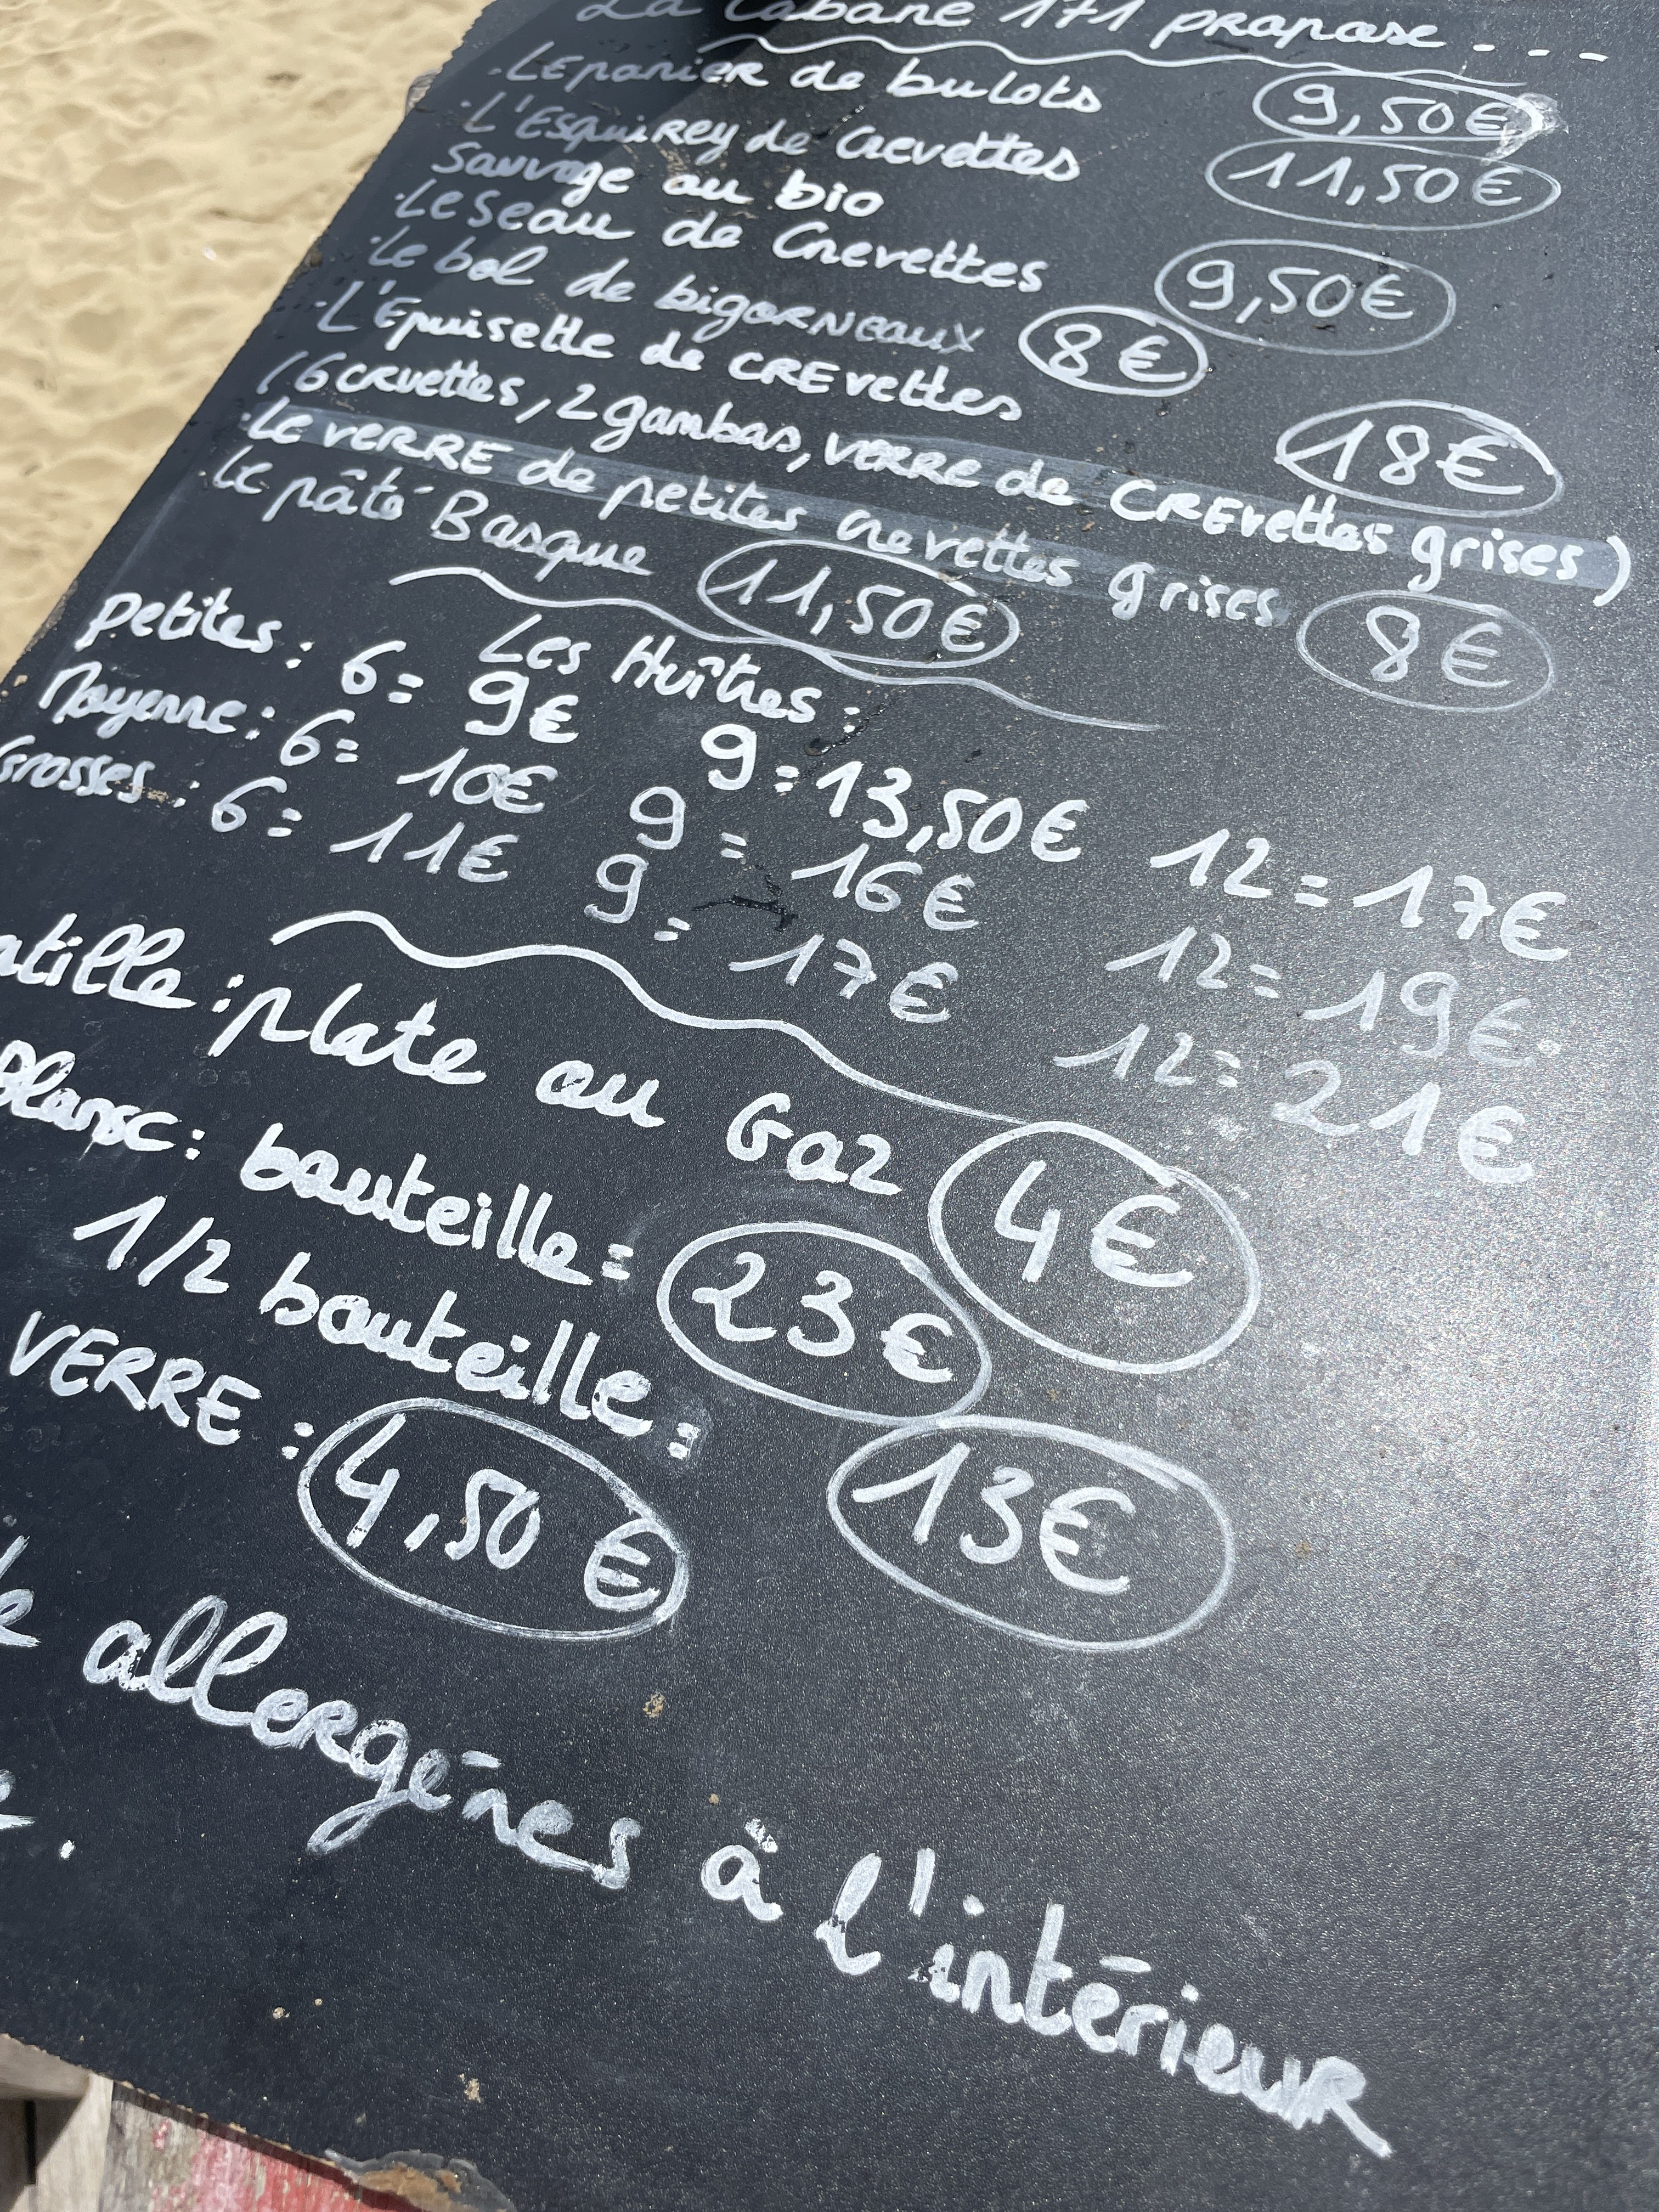 La Cabane 171 propose ....
· Le panier de bulots 9,50€
· L'Esquirey de Crevettes 11,50€
Sauvage ou bio
· Le seau de Crevettes 9,50€
· Le bol de bigorneaux 8€
· L'Epuisette de CREvettes 18€
(6 crvettes, 2 gambas, verre de CREvettes grises)
· Le VERRE de petites crevettes grises 8€
· Le pâté Basque 11,50€
Les Huîtres :
Petites : 6 = 9€ 9 = 13,50€ 12 = 17€
Moyenne : 6 = 10€ 9 = 16€ 12 = 19€
Grosses : 6 = 11€ 9 = 17€ 12 = 21€
atille : plate ou Gaz 4€
Blanc : bouteille = 23€
1/2 bouteille = 13€
VERRE : 4,50 €
allergènes à l'intérieur